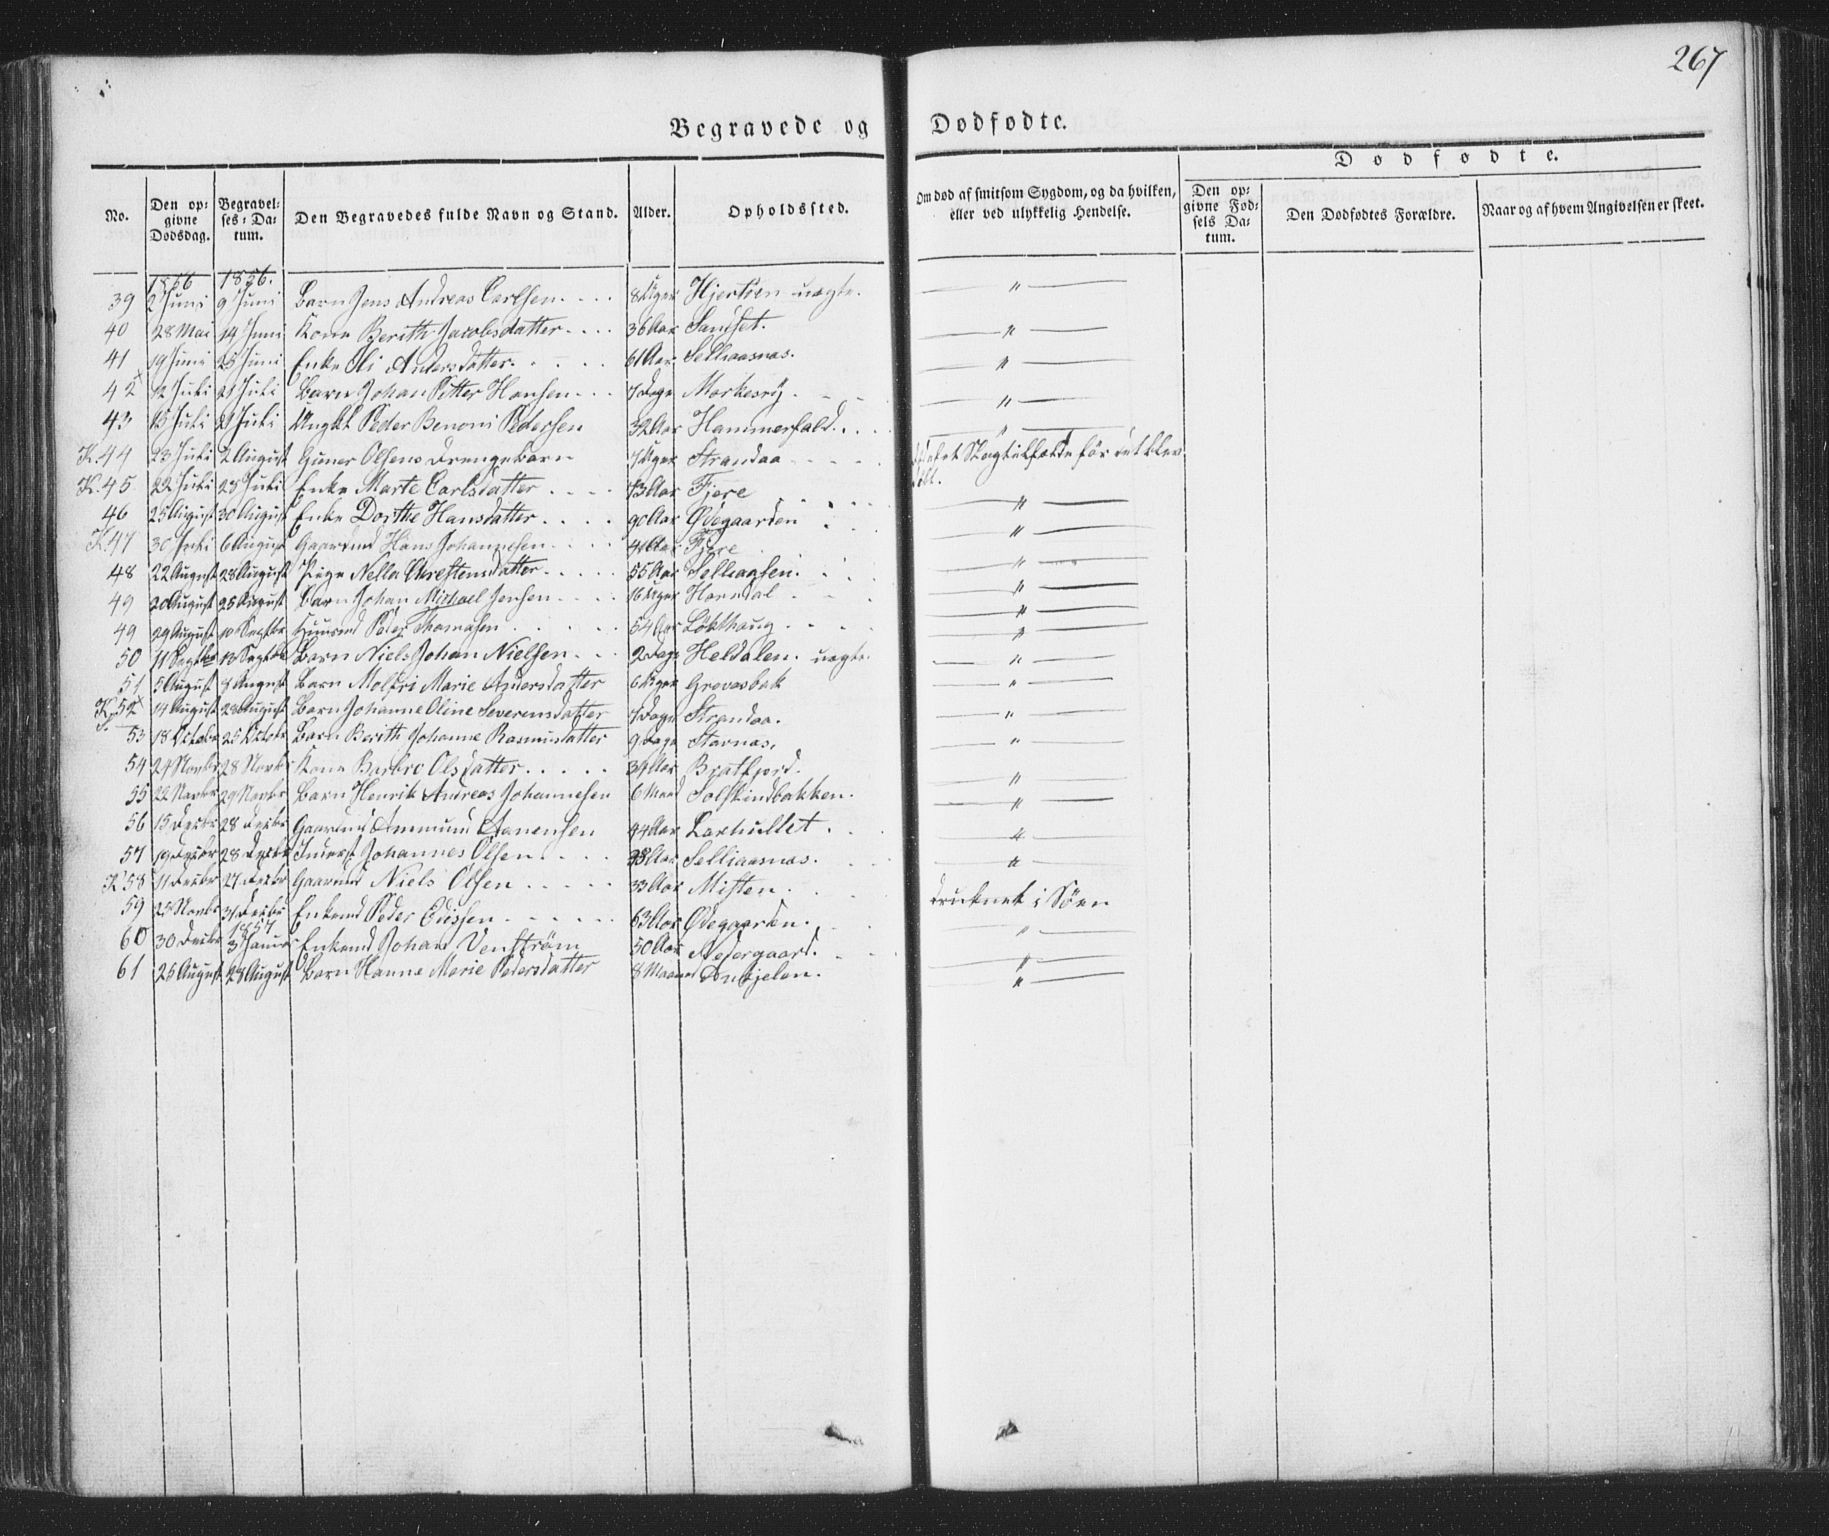 267
Begravede og Dødfødte.
Dødfødte.
No.
Den op-
givne
Dødsdag.
Begravel-
ses-Da-
tum.
Den Begravedes fulde Navn og Stand.
Alder.
Opholdssted.
Om død af smitsom Sygdom, og da hvilken,
eller ved ulykkelig Hendelse.
Den op-
givne Fød-
sels Da-
tum.
Den Dødfødtes Forældre.
Naar og af hvem Angivelsen er skeet.
1856 1856.
39 2 Juni 9 Juni Barn Jens Andreas Carlsen 8 Uger Hjertøen uægte. "
40 28 Mai 14 Juni Kone Berith Jacobsdatter 36 Aar Sandset. "
41 19 Juni 25 Juni Enke Oli Andersdatter 61 Aar Selliaasnas. "
42 12 Juli 21 Juli Barn Johan Petter Hansen 7 Dage Morkesvig "
43 15 Juli 21 Juli Ungkl Peder Benoni Pedersen 32 Aar Hammerfald. "
K. 44 23 Juli 2 August Guner Olsens Drengebarn 7 Uger Strandaa
K. 45 22 Juli 28 Juli Enke Marte Carlsdatter 73 Aar Fjere "
46 25 August 30 August Enke Dorthe Hansdatter 90 Aar Ødegaarden "
K. 47 30 Juli 6 August Gaardmd Hans Johannesen 41 Aar Fjere "
48 22 August 28 August Pige Nella Chrestensdatter 55 Aar Selliaasen "
49 20 August 25 August Barn Johan Michael Jensen 16 Uger Horndal "
49 29 August 10 Septbr Huusmd Peder Thomasen 54 Aar Løkthaug "
50 11 Septbr 13 Septbr Barn Niels Johan Nielsen 2 Dage Heldalen. uægte "
51 5 August 9 August Barn Molfri Marie Andersdatter 6 Uger Grovasbak "
K. 52 14 August 28 August Barn Johanne Oline Severensdatter 7 Dage Strandaa. "
53 18 Octobr 25 Octobr Barn Berith Johanne Rasmusdatter 9 Dage Starnas, "
54 24 Novbr 28 Novbr Kone Barbro Olsdatter 39 Aar Bratfjord. "
55 22 Novbr 29 Novbr Barn Henrik Andreas Johannesen 6 Maan Solskindbakken. "
56 15 Decbr 28 Decbr Gaardmd Ammund Aanensen 44 Aar Laxhullet. "
57 19 Decbr 28 Decbr Inderst Johannes Olsen 38 Aar Selliaasnas. "
K 58 11 Decbr 27 Decbr Gaardmd Niels Olsen 33 Aar Misten. druknet i Søen
59 25 Novbr 31 Decbr Enkemd Peder 63 Aar Ødegaarden. "
1857
60 30 Decbr 3 Januar Enkemd Johan Venstrøm 50 Aar Nedergaard. "
61 25 August 28 August Barn Hanne Marie Pedersdatter 8 Maaned "